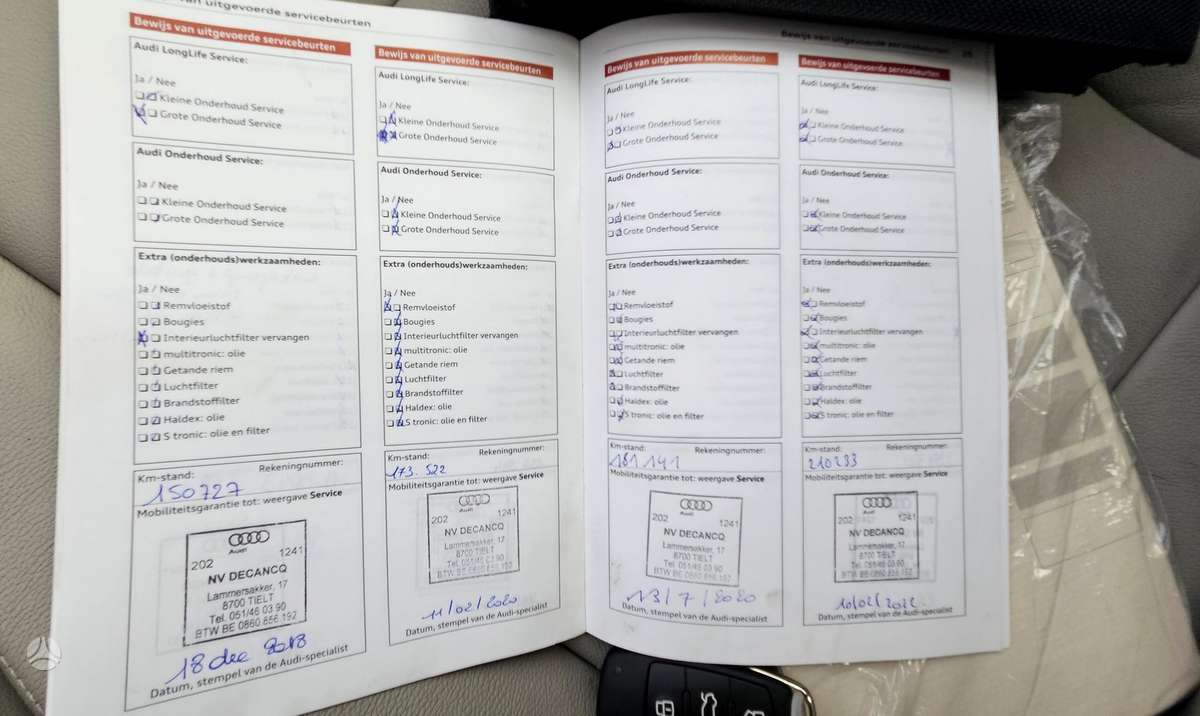 uitgevoerde servicebeurten
Bewijs van uitgevoerde servicebeurten
Audi LongLife Service:
Ja / Nee
Kleine Onderhoud Service
Grote Onderhoud Service
Audi Onderhoud Service:
Ja / Nee
Kleine Onderhoud Service
Grote Onderhoud Service
Extra (onderhouds)werkzaamheden:
Ja / Nee
Remvloeistof
Bougies
Interieurluchtfilter vervangen
multitronic: olie
Getande riem
Luchtfilter
Brandstoffilter
Haldex: olie
S tronic: olie en filter
Km-stand: Rekeningnummer:
150727
Mobiliteitsgarantie tot: weergave Service
Audi
202 1241
NV DECANCQ
Lammersakker, 17
8700 TIELT
Tel. 051/46 03 90
BTW BE 0860.856.192
18 dec 2018
Datum, stempel van de Audi-specialist
Bewijs van uitgevoerde servicebeurten
Audi LongLife Service:
Ja / Nee
Kleine Onderhoud Service
Grote Onderhoud Service
Audi Onderhoud Service:
Ja / Nee
Kleine Onderhoud Service
Grote Onderhoud Service
Extra (onderhouds)werkzaamheden:
Ja / Nee
Remvloeistof
Bougies
Interieurluchtfilter vervangen
multitronic: olie
Getande riem
Luchtfilter
Brandstoffilter
Haldex: olie
S tronic: olie en filter
Km-stand: Rekeningnummer:
173.522
Mobiliteitsgarantie tot: weergave Service
Audi
202 1241
NV DECANCQ
Lammersakker, 17
8700 TIELT
Tel. 051/46 03 90
BTW BE 0860.856.192
11/02/2020
Datum, stempel van de Audi-specialist
Bewijs van uitgevoerde servicebeurten
Bewijs van uitgevoerde servicebeurten
Audi LongLife Service:
Ja / Nee
Kleine Onderhoud Service
Grote Onderhoud Service
Audi Onderhoud Service:
Ja / Nee
Kleine Onderhoud Service
Grote Onderhoud Service
Extra (onderhouds)werkzaamheden:
Ja / Nee
Remvloeistof
Bougies
Interieurluchtfilter vervangen
multitronic: olie
Getande riem
Luchtfilter
Brandstoffilter
Haldex: olie
S tronic: olie en filter
Km-stand: Rekeningnummer:
181141
Mobiliteitsgarantie tot: weergave Service
Audi
202 1241
NV DECANCQ
Lammersakker, 17
8700 TIELT
Tel. 051/46 03 90
BTW BE 0860.856.192
13/7/2020
Datum, stempel van de Audi-specialist
Bewijs van uitgevoerde servicebeurten
Audi LongLife Service:
Ja / Nee
Kleine Onderhoud Service
Grote Onderhoud Service
Audi Onderhoud Service:
Ja / Nee
Kleine Onderhoud Service
Grote Onderhoud Service
Extra (onderhouds)werkzaamheden:
Ja / Nee
Remvloeistof
Bougies
Interieurluchtfilter vervangen
multitronic: olie
Getande riem
Luchtfilter
Brandstoffilter
Haldex: olie
S tronic: olie en filter
Km-stand: Rekeningnummer:
210233
Mobiliteitsgarantie tot: weergave Service
Audi
202 1241
NV DECANCQ
Lammersakker, 17
8700 TIELT
Tel. 051/46 03 90
BTW BE 0860.856.192
10/02/2022
Datum, stempel van de Audi-specialist